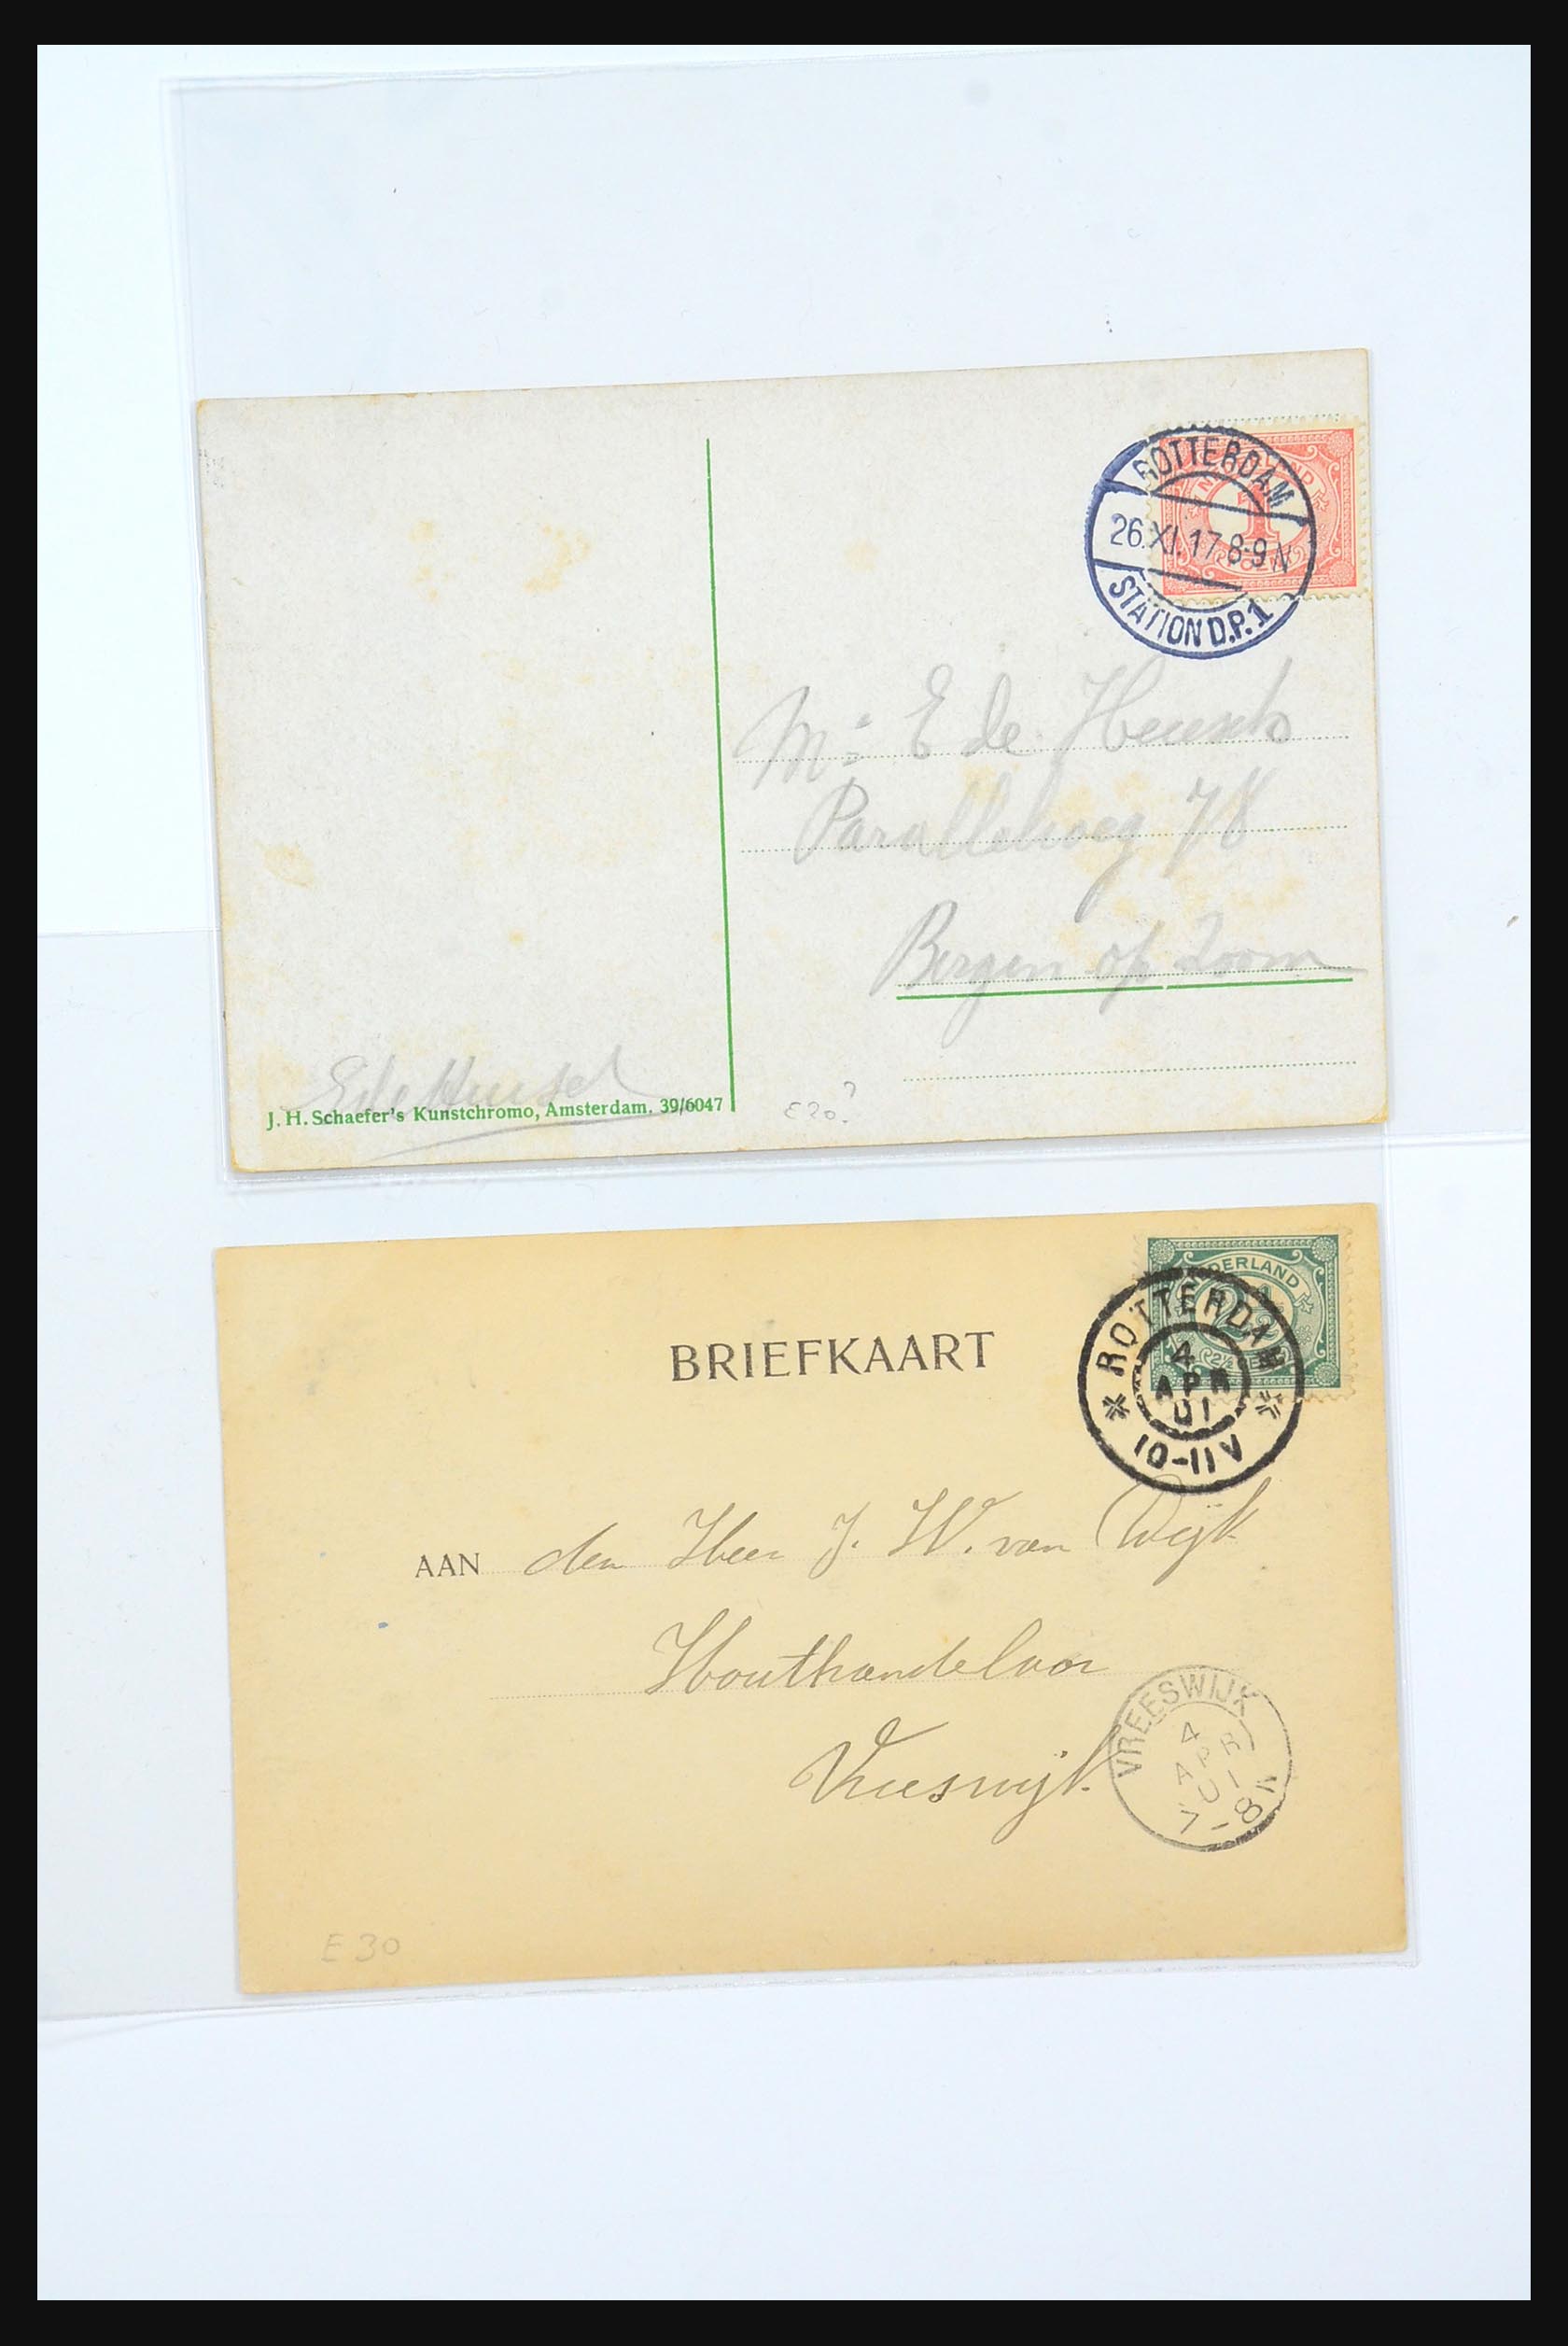 NEDERLAND
1
ROTTERDAM
26.XI.17.8-9N
STATION D.P. 1
Mr E de Heusch
Parallelweg 78
Bergen op Zoom
J. H. Schaefer's Kunstchromo, Amsterdam. 39/6047
E 20?
NEDERLAND
2½
ROTTERDAM
4
APR
01
10-11V
BRIEFKAART
AAN den Heer J. W. van Wijk
Houthandelaar
Vreeswijk.
VREESWIJK
4
APR
01
7-8N
E 30